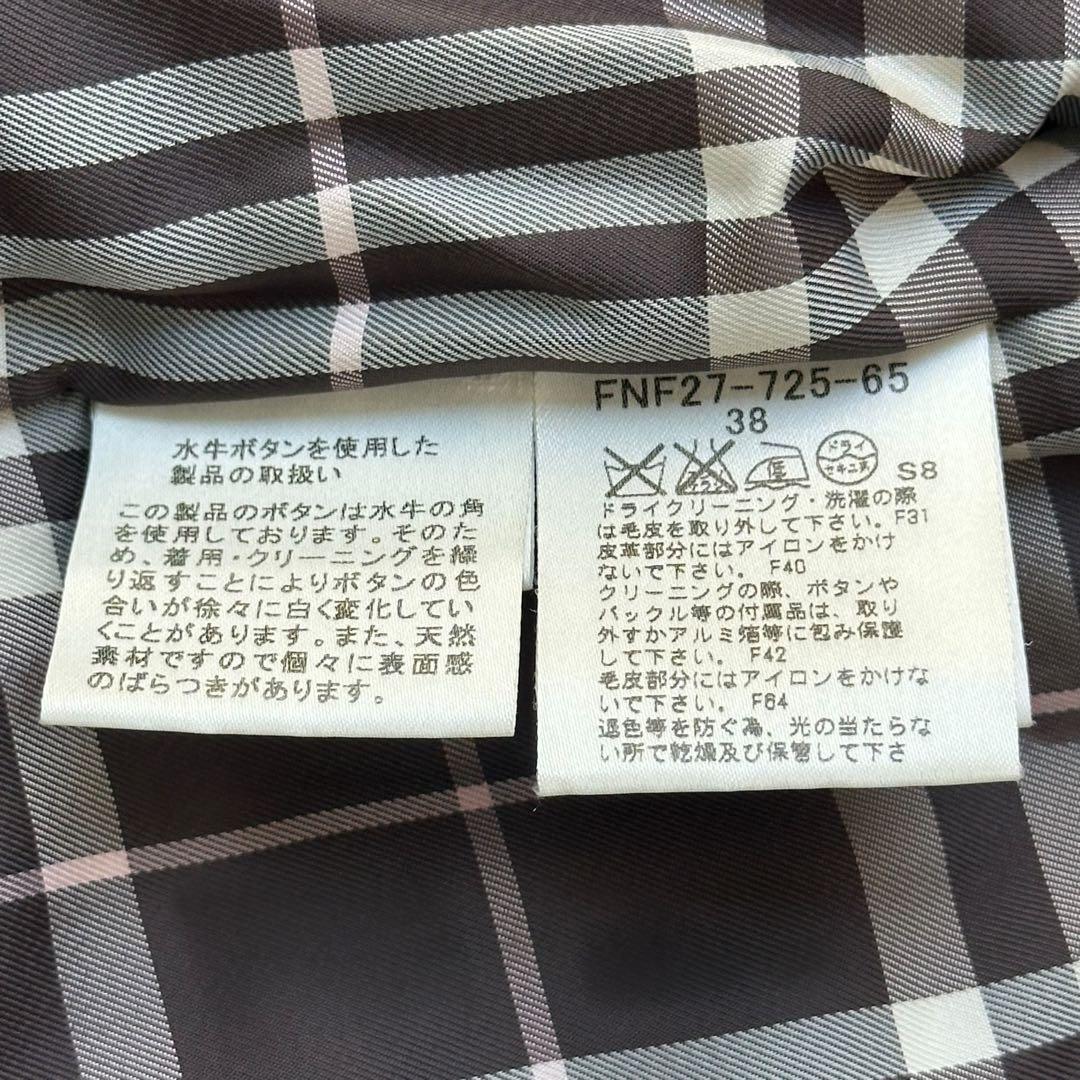 水牛ボタンを使用した
製品の取扱い
この製品のボタンは水牛の角
を使用しております。そのた
め、着用・クリーニングを繰
り返すことによりボタンの色
合いが徐々に白く変化してい
くことがあります。また、天然
素材ですので個々に表面感
のばらつきがあります。
FNF27-725-65
38
エンソ
低
ドライ
セキユ系
S8
ドライクリーニング・洗濯の際
は毛皮を取り外して下さい。F31
皮革部分にはアイロンをかけ
ないで下さい。 F40
クリーニングの際、ボタンや
バックル等の付属品は、取り
外すかアルミ箔等に包み保護
して下さい。 F42
毛皮部分にはアイロンをかけな
いで下さい。 F64
退色等を防ぐ為、光の当たらな
い所で乾燥及び保管して下さ